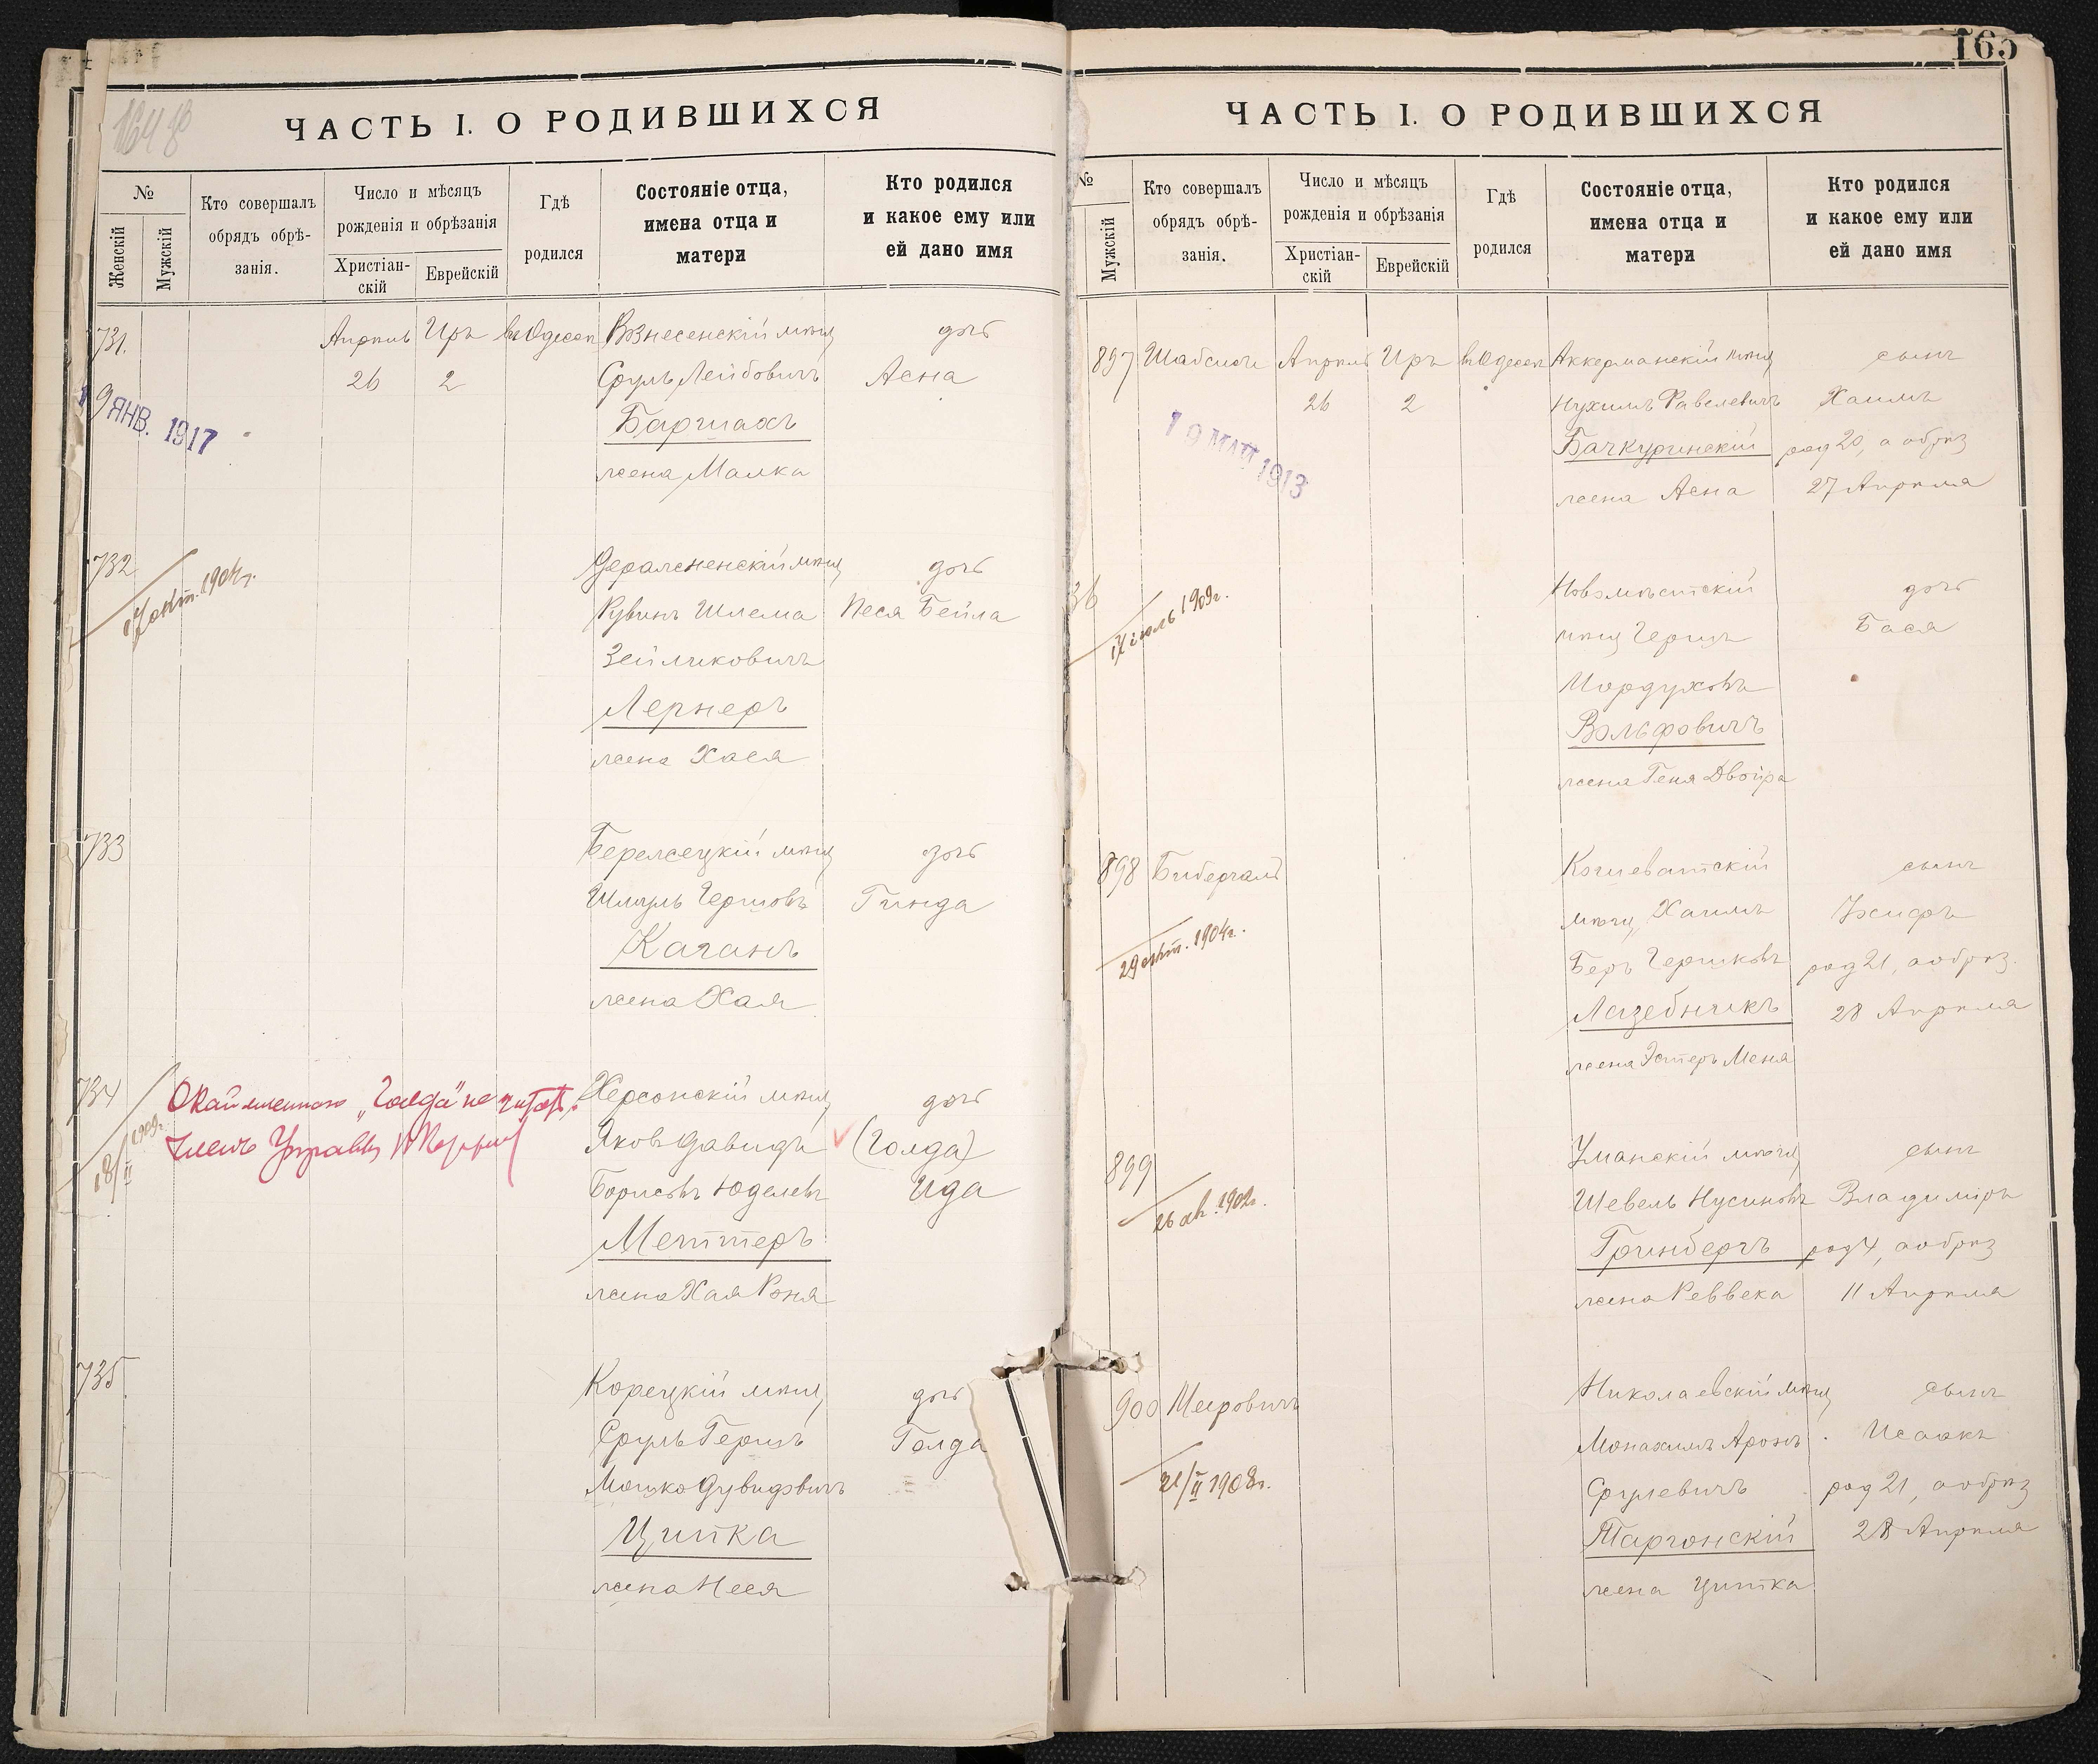 164 об
ЧАСТЬ I. О РОДИВШИХСЯ
№
Женскій
Мужскій
Кто совершалъ
обрядъ обрѣ-
занія.
Число и мѣсяцъ
рожденія и обрѣзанія
Христіан-
скій
Еврейскій
Гдѣ
родился
Состояніе отца,
имена отца и
матери
Кто родился
и какое ему или
ей дано имя
731.
Апрѣль Иръ въ Одессѣ Вознесенскій мѣщ дочь
26 2 Сруль Лейбовичъ Асна
19 ЯНВ. 1917
Баршахъ
жена Малка
732 Деражненскій мѣщ дочь
17 окт. 1904г.
Рувинъ Шлема Песя Бейла
Зейликовичъ
Лернеръ
жена Хася
733 Бережецкій мѣщ дочь
Шмуль Гершовъ Гинда
Каганъ
жена Хая
734 Окаймленного "Голда" не читать. Херсонскій мѣщ дочь
Членъ Управы
18/II 1909г.
Яковъ Давидъ (Голда)
Борисовъ Юделевъ Ида
Меттеръ
жена Хая Роня
735 Корецкій мѣщ дочь
Сруль Гершъ Голда
Мошко Дувидовичъ
Ципка
жена Неся
165
ЧАСТЬ I. О РОДИВШИХСЯ
№
Мужскій
Кто совершалъ
обрядъ обрѣ-
занія.
Число и мѣсяцъ
рожденія и обрѣзанія
Христіан-
скій
Еврейскій
Гдѣ
родился
Состояніе отца,
имена отца и
матери
Кто родился
и какое ему или
ей дано имя
897 Шабсисъ Апрѣль Иръ въ Одессѣ Аккерманскій мѣщ сынъ
26 2 Нухимъ Фавелевичъ Хаимъ
19 МАЯ 1913
Бачкуринскій род 20, а обрѣз
жена Асна 27 Апрѣля
36 Новомѣстскій дочь
17 іюль 1909г.
мѣщ Гершъ Бася
Мордуховъ
Вольфовичъ
жена Геня Двойра
898 Бибергалъ Кошеватскій сынъ
мѣщ Хаимъ Іосифъ
29 окт. 1904г.
Беръ Гершковъ род 21, а обрѣз.
Лазебникъ 28 Апрѣля
жена Эстеръ Меня
899 Уманскій мѣщ сынъ
26 ав. 1902г.
Шевель Нусиновъ Владиміръ
Гринбергъ род 4, а обрѣз
жена Реввека 11 Апрѣля
900 Меировичъ Николаевскій мѣщ сынъ
Монахимъ Аронъ Исаакъ
21/II 1908г.
Срулевичъ род 21, а обрѣз
Таргонскій 28 Апрѣля
жена Ципка